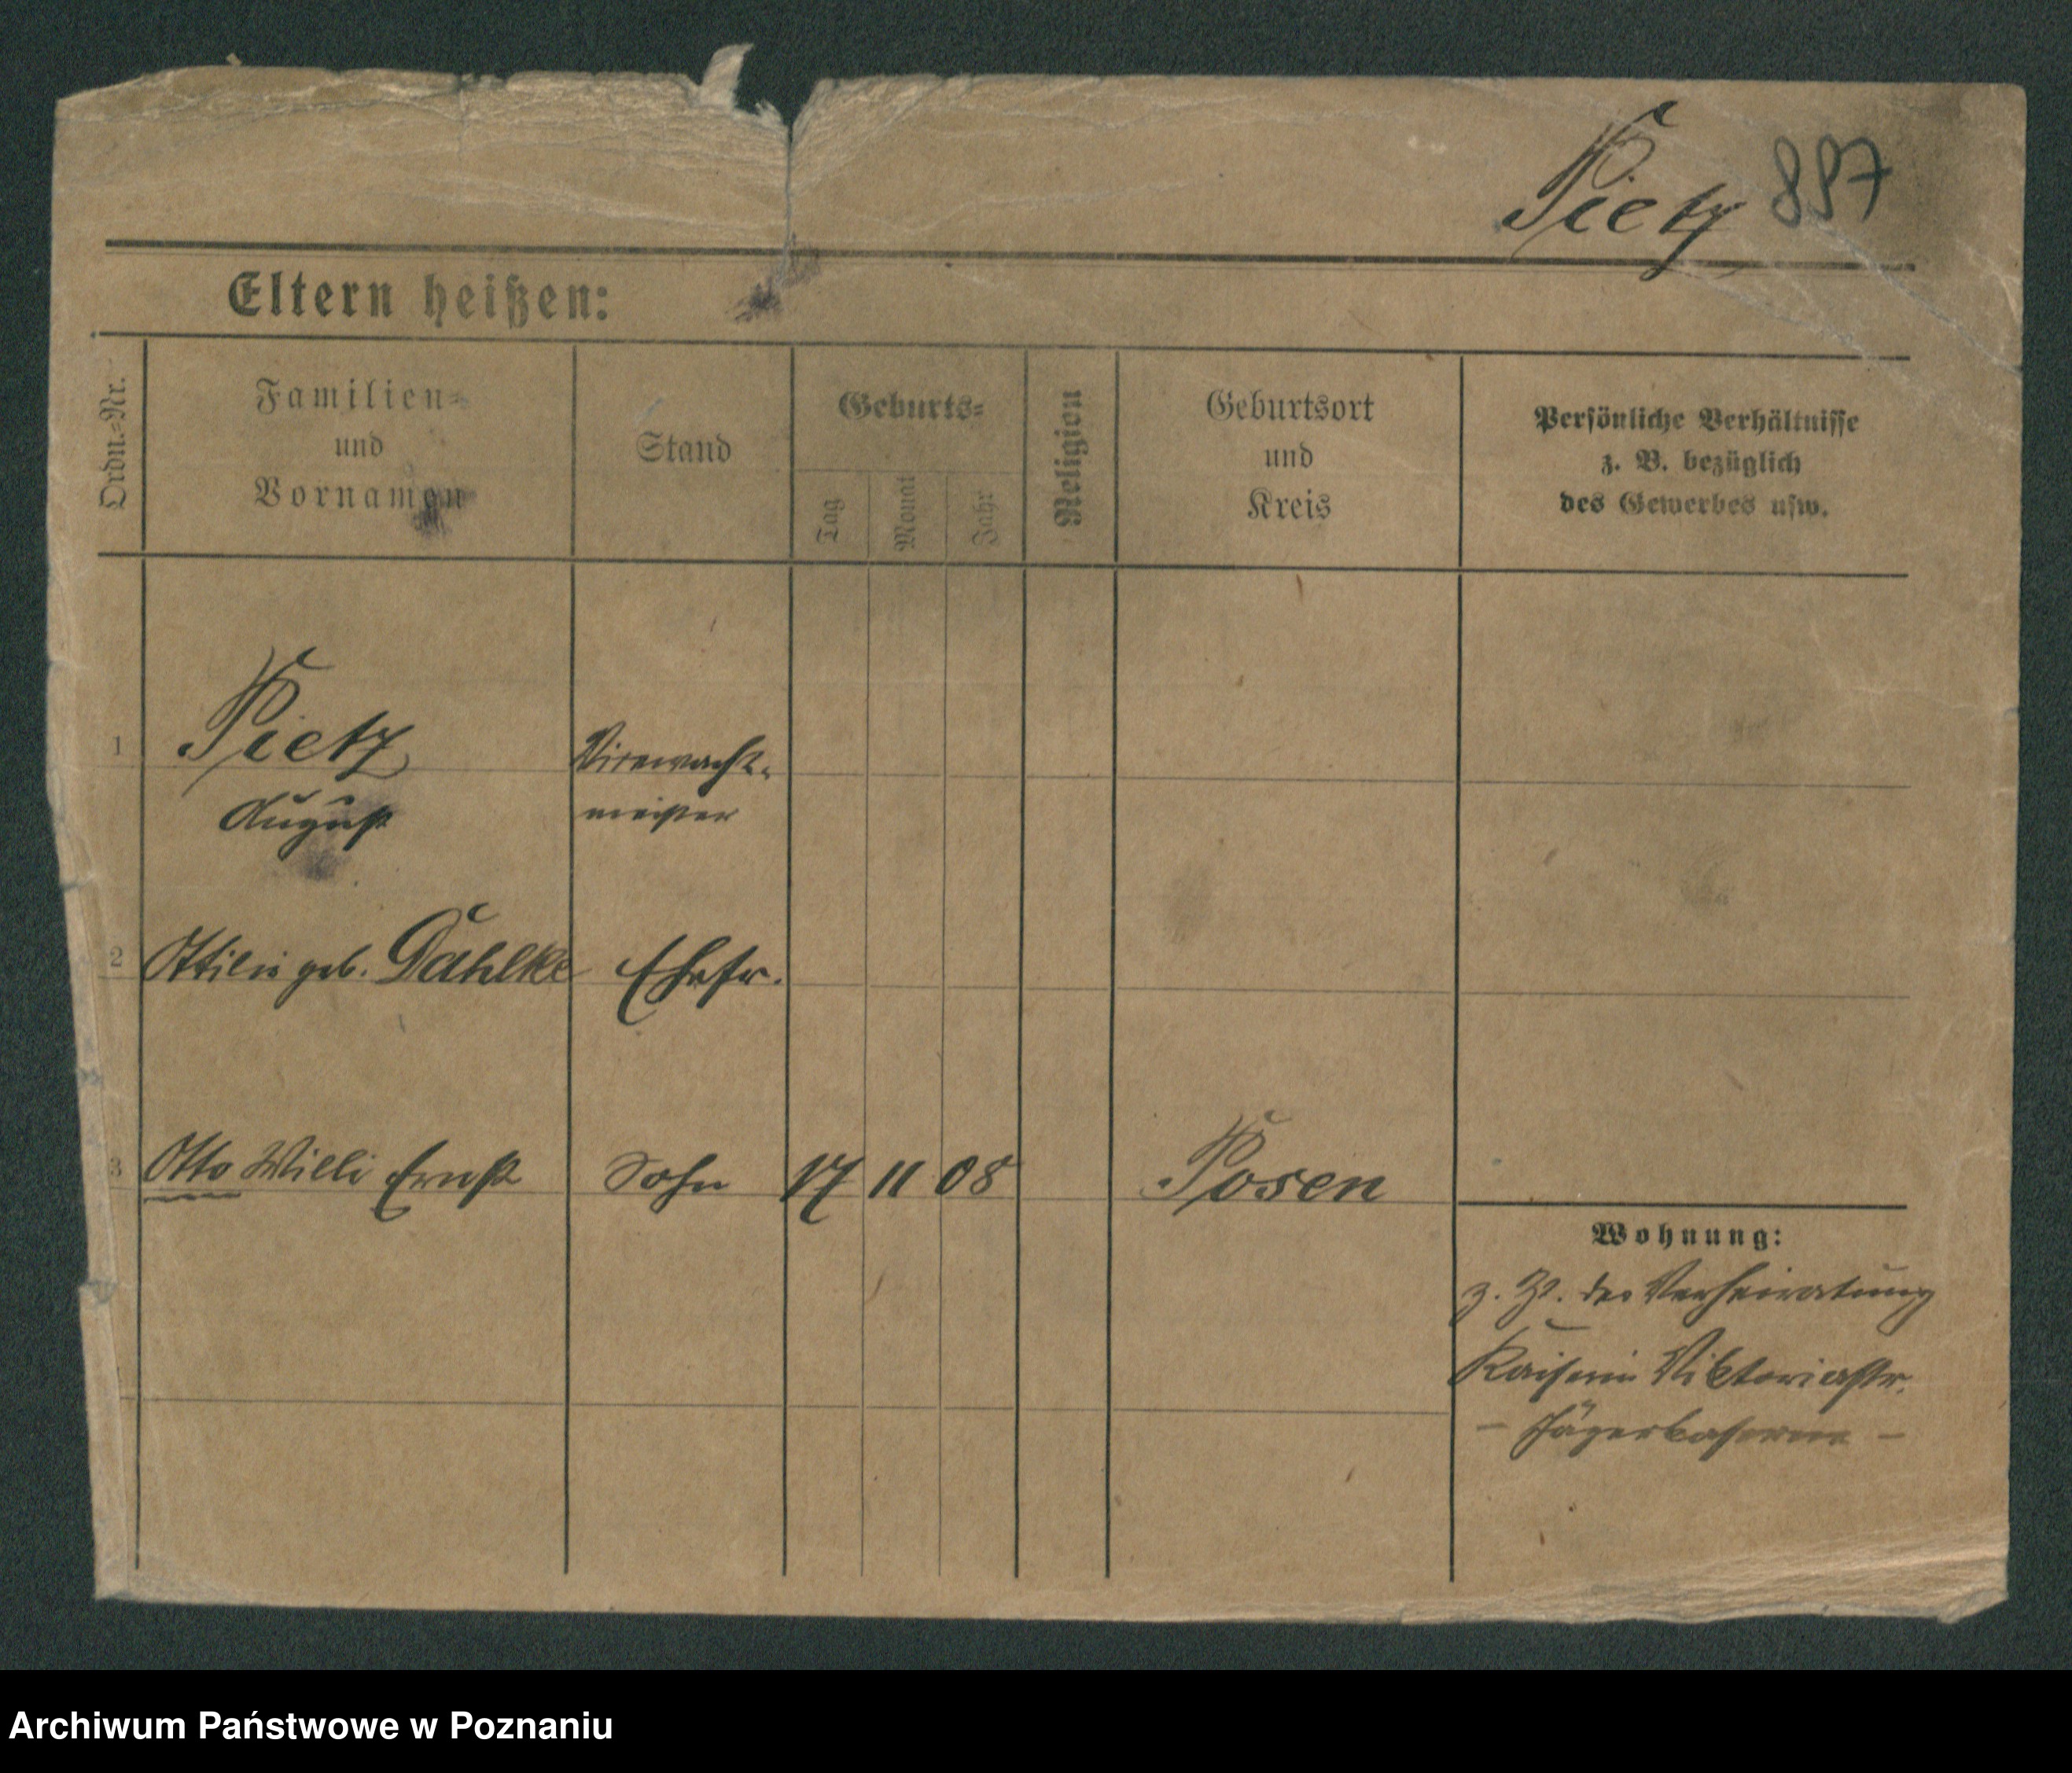 Pietz 887
Eltern heißen:
Ordn.-Nr.
Familien-
und
Vornamen
Stand
Geburts-
Tag
Monat
Jahr
Religion
Geburtsort
und
Kreis
Persönliche Verhältnisse
z. B. bezüglich
des Gewerbes usw.
1 Pietz Vicewacht-
August meister
2 Ottilie geb. Dahlke Ehefr.
3 Otto Willi Ernst Sohn 17 11 08 Posen
Wohnung:
z. Zt. der Verheiratung
Kaiserin Viktoriastr.
- Jägerkaserne -
Archiwum Państwowe w Poznaniu